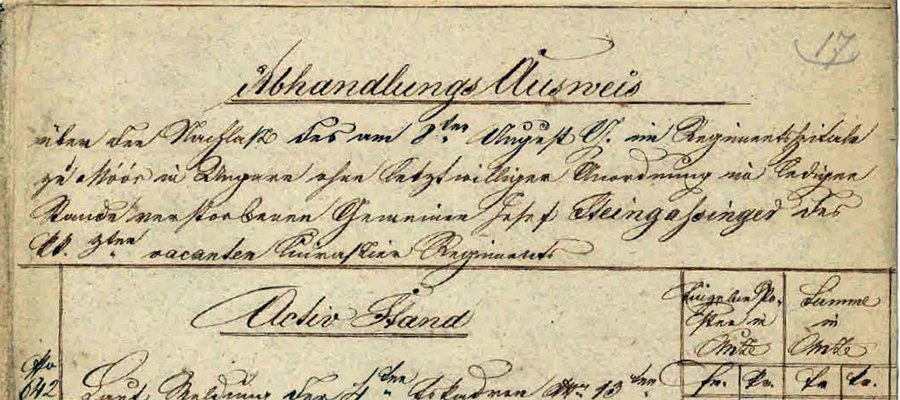 17
Abhandlungs Ausweis
über den Nachlaß des am 8ten August in Regimentsspitale
zu Moór in Ungarn ohne letztwilliger Anordnung im ledigen
Stande verstorbenen Gemeinen Josef Steingassinger des
kk. ten vacanten Kürassier Regiments
Activ Stand
Eingelne Po-
sten in
Summe
in
fr. kr. fr. kr.
No
642
Laut Meldung der 4ten Eskadron No 13ten